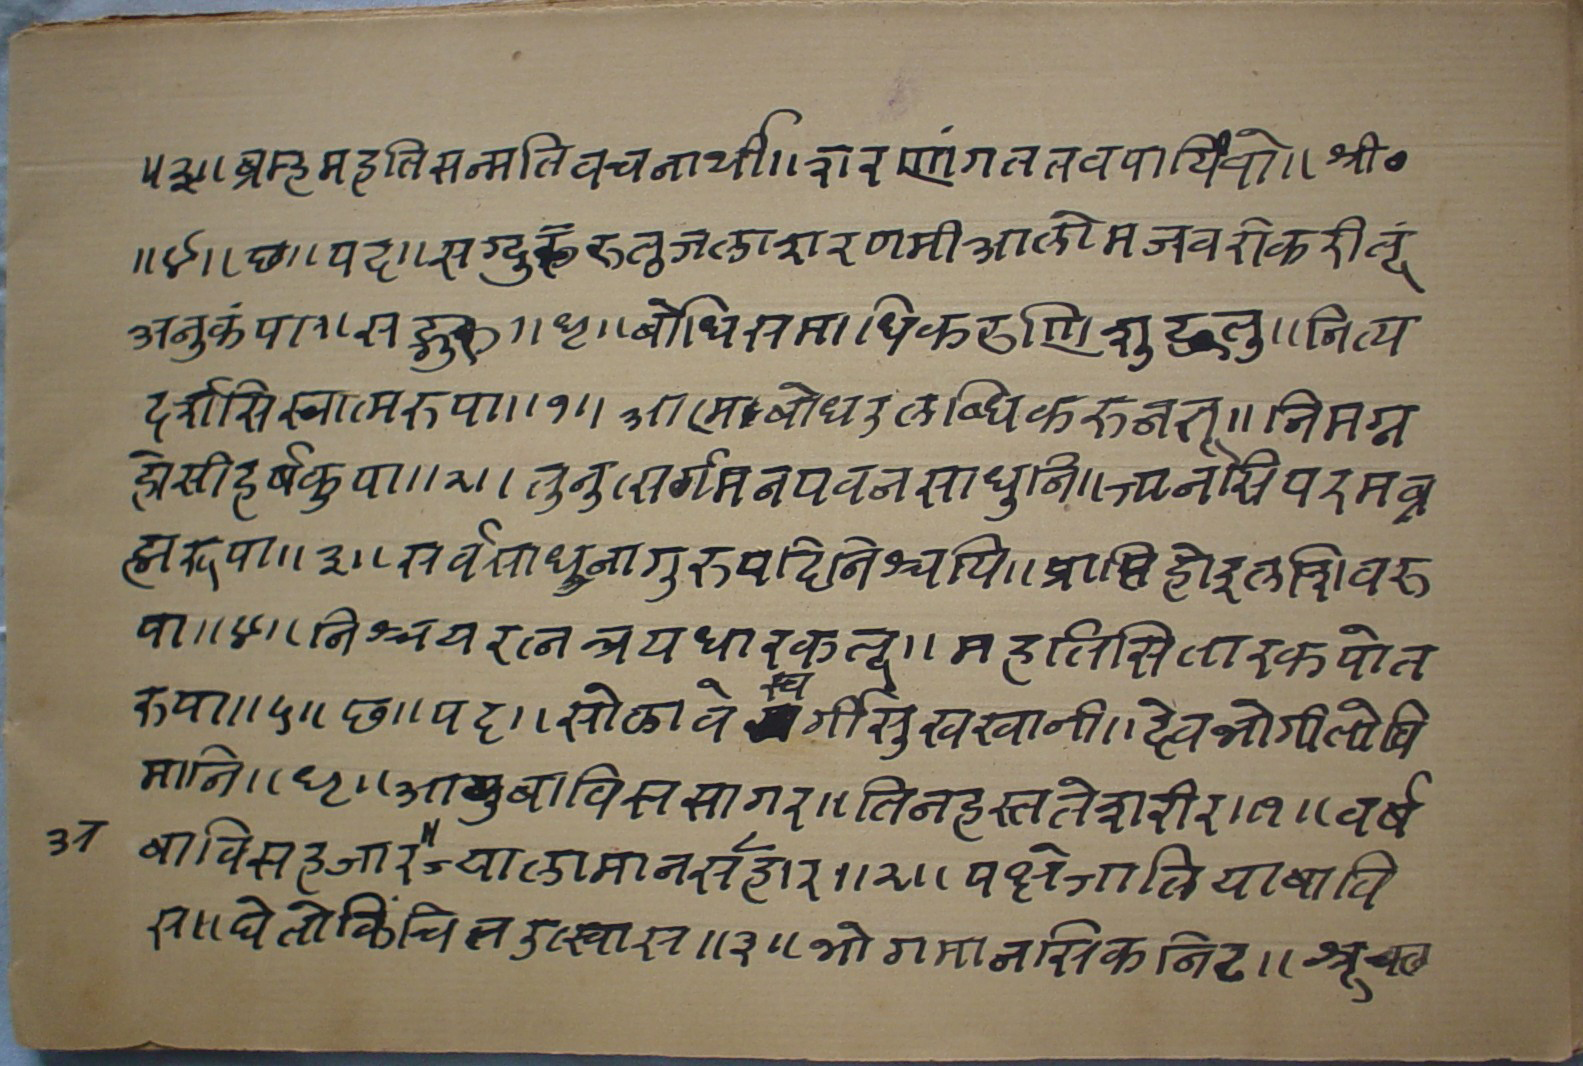 ॥३॥ ब्रम्ह महति सन्मति वचनार्थी॥ शरणांगत तव पायिं वो॥ श्री०
॥४॥ छ॥ पद॥ सग्दुरु तुजला शरण मी आलो मजवरी करी तूं
अनुकंपा॥ सद्गुरु॥ धृ॥ बोधि समाधि करुणि शुद्ध तु॥ नित्य
दर्शसि स्वात्मरुपा॥१॥ आत्मबोध उलब्धि करुन तू॥ निमग्न
होसी हर्षकुपा॥२॥ तुनुत्सर्ग मन पवन साधुनि॥ ज्यानसि परमब्र
ह्मरूपा॥३॥ सर्व साधुना गुरुपदि निश्चयि॥ प्राप्ति होइल शिवरु
पा॥४॥ निश्चय रत्नत्रय धारक तू॥ महतिसि तारक पोत
रुपा॥५॥ छ॥ पद॥ सोळावे स्वर्गी सुखखानी॥ देव भोगीतो वि
मानि॥ धृ॥ आयु बाविस सागर॥ तिन हस्त ते शरीर॥१॥ वर्ष
अ बाविस हजार ज्याला मानसँहार॥२॥ पक्षे जालिया बावि
स॥ घेतो किंचित उत्स्वास॥३॥ भोग मानसिक निट॥